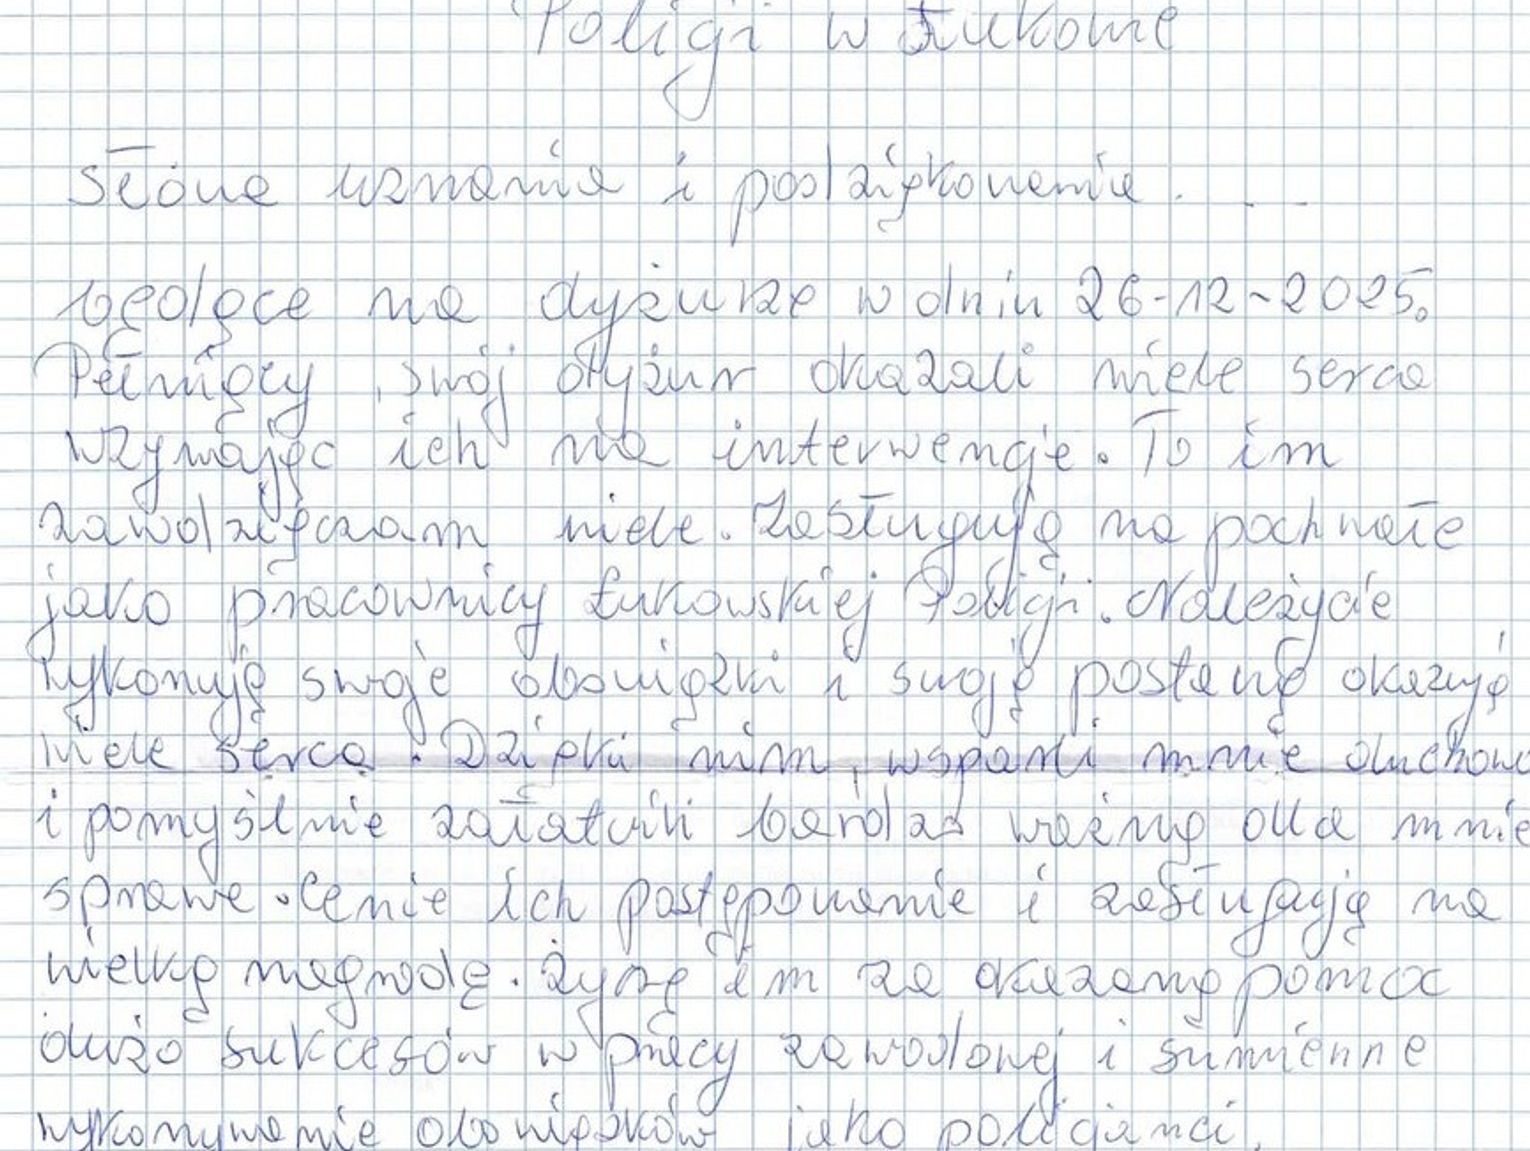 Policji w Łukowie
Słowa uznania i podziękowania . . .
będące na dyżurze w dniu 26-12-2025.
Pełniący swój dyżur okazali wiele serca
wzywając ich na interwencje. To im
zawdzięczam wiele. Zasługują na pochwałe
jako pracownicy Łukowskiej Policji. Należycie
wykonują swoje obowiązki i swoją postawą okazują
wiele serca. Dzięki nim, wsparli mnie duchowo
i pomyślnie załatwili bardzo ważną dla mnie
sprawe. Cenie ich postępowanie i zasługują na
wielką nagrodę. Życzę im za okazaną pomoc
dużo sukcesów w pracy zawodowej i sumienne
wykonywanie obowiązków jako policjanci.